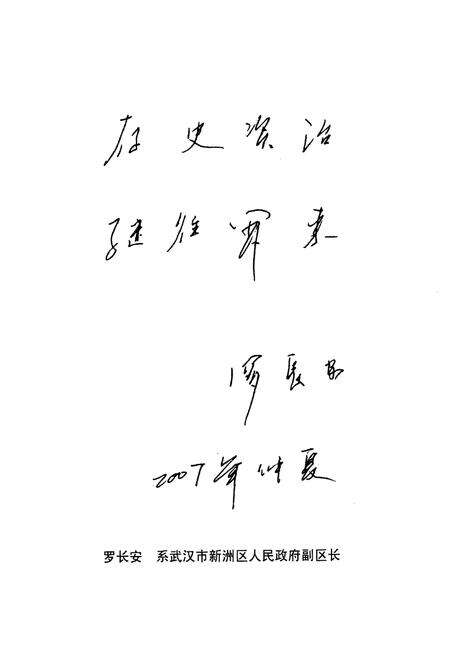 存史资治
继往开来
罗长安
2007年仲夏
罗长安 系武汉市新洲区人民政府副区长